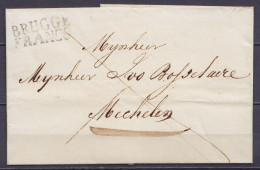 BRUGGE
FRANCO
Mynheer
Mynheer Ivo Bosselaire
Mechelen